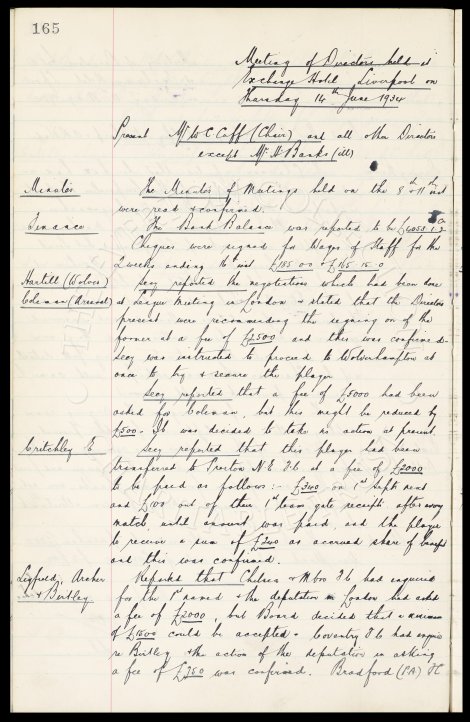 165
Meeting of Directors held at
Exchange Hotel Liverpool on
Thursday 14th June 1934
Present Mr W C Cuff (Chair) and all other Directors
except Mr H Banks (ill)
Minutes The Minutes of Meetings held on the 8th & 11th inst
were read & confirmed.
Finance The Bank Balance was reported to be
Cheques were signed for Wages of Staff for the
2 weeks ending inst £185.00 &
Hartill (Wolves) Secy reported the negotiations which had been done
Coleman (Arsenal) at League Meeting in London & stated that the Directors
present were recommending the signing on of the
former at a fee of £2500 and this was confirmed.
Secy was instructed to proceed to Wolverhampton at
once to try & secure the player
Secy reported that a fee of £5000 had been
asked for Coleman, but this might be reduced by
£500. It was decided to take no action at present.
Critchley E Secy reported that this player had been
transferred to Preston N E F.C at a fee of £2000
to be paid as follows:- £340 on 1st Sept next
and £100 out of their 1st team gate receipts after every
match until amount was paid, and the player
to receive a sum of £340 as accrued share of benefit
and this was confirmed.
Archer Reported that Chelsea & M'bro F.C had enquired
& Birtley for the 1st named & the deputation in London had asked
a fee of £2000, but Board decided that a minimum
of £1500 could be accepted. Coventry F.C had
re Birtley & the action of the deputation in asking
a fee of £750 was confirmed. Bradford (P.A) FC